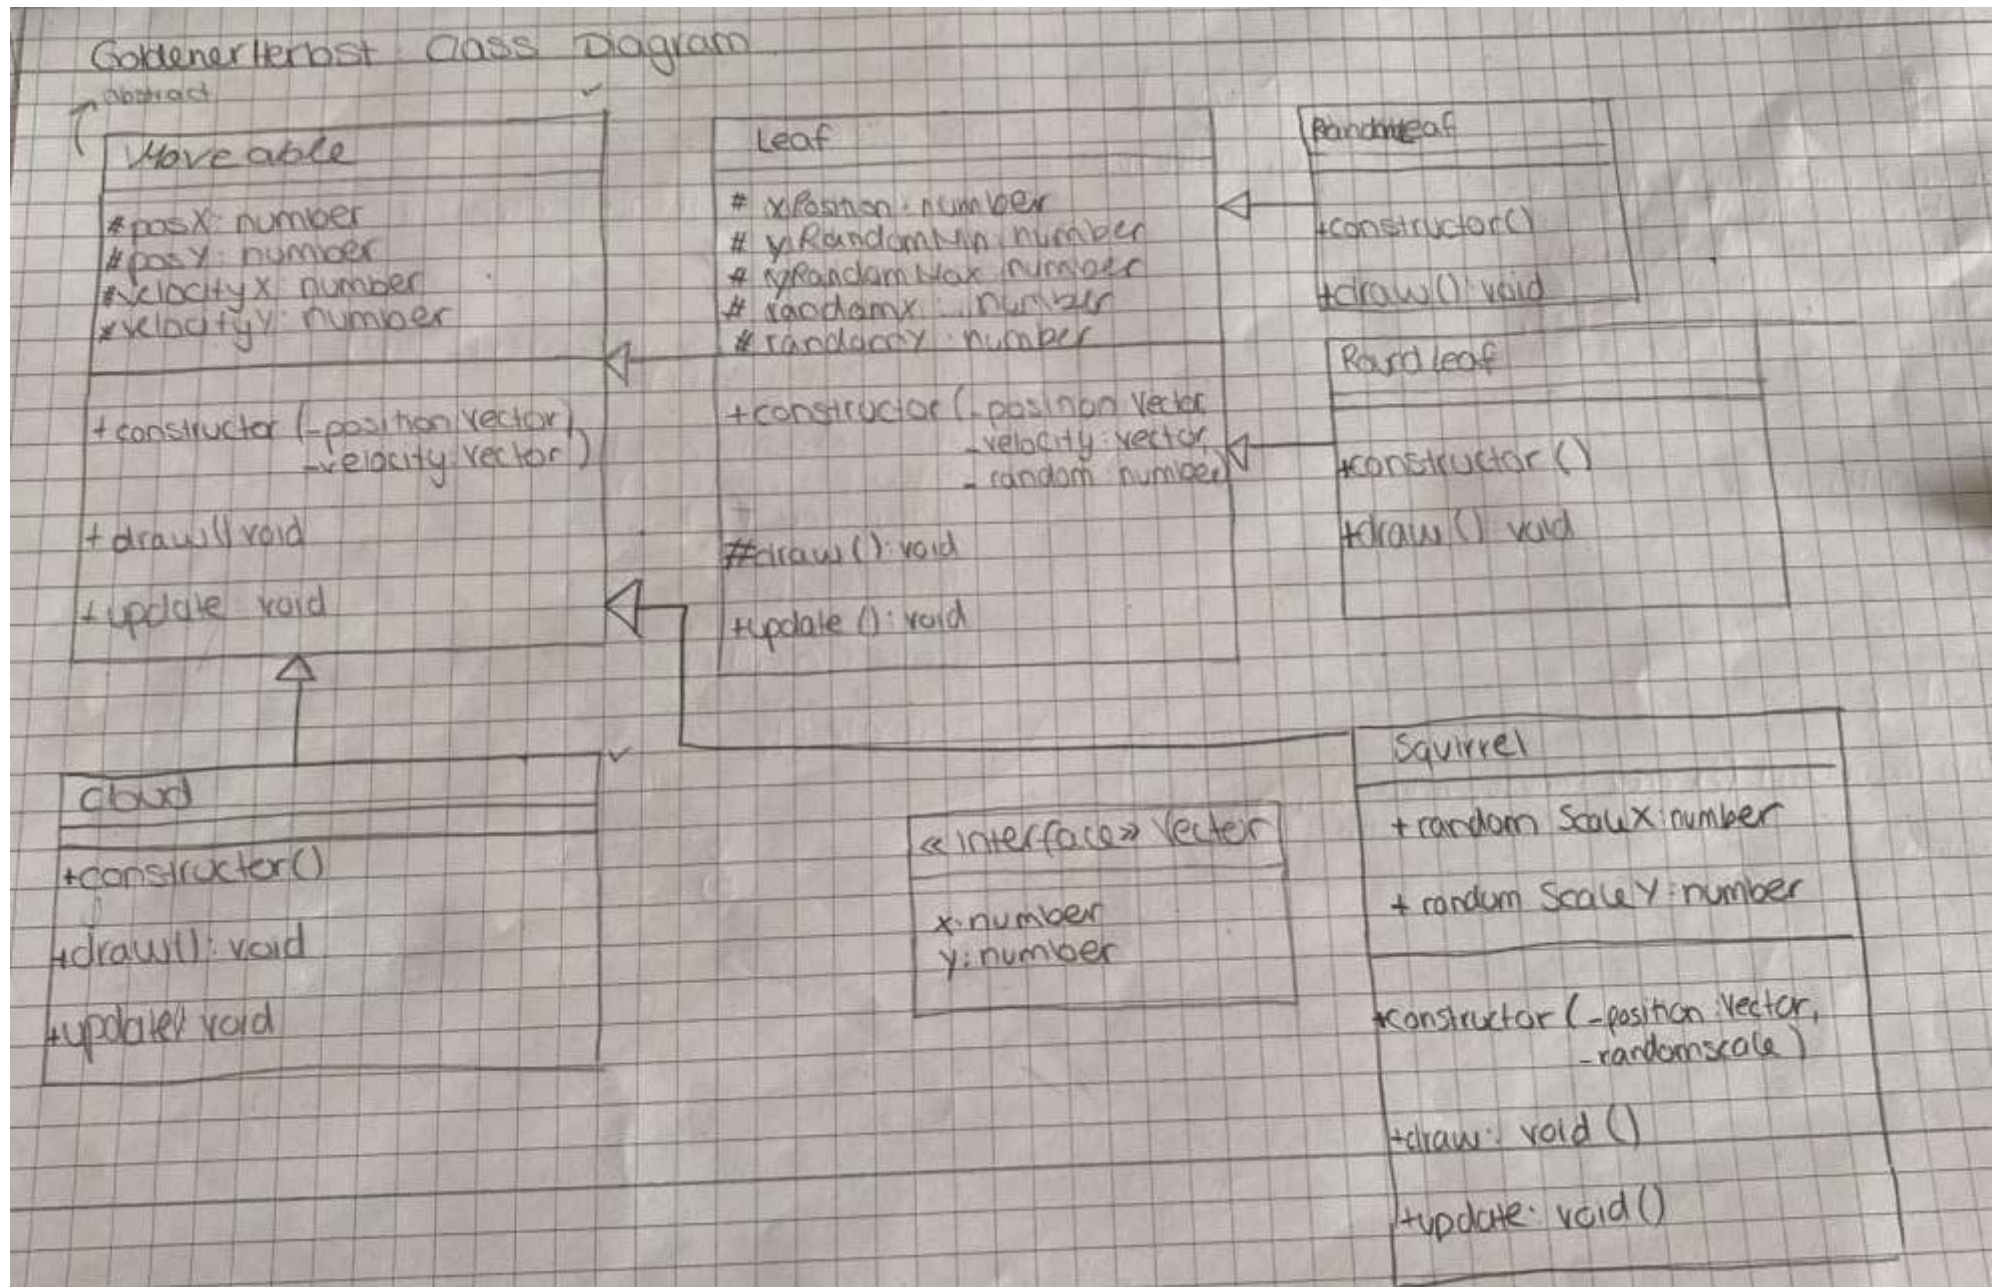 Goldener Herbst Class Diagram
abstract
Moveable
# posX: number
# posY: number
# velocityX: number
# velocityY: number
+ constructor (_position: Vector,
_velocity: Vector)
+ draw() void
+ update void
Leaf
# xPosition: number
# yRandomMin: number
# yRandomMax: number
# randomX: number
# number
+ constructor (_position: Vector
_velocity: Vector,
_random: number)
# draw(): void
+ update(): void
+constructor()
+draw(): void
Leaf
+constructor()
+draw(): void
Cloud
+constructor()
+draw(): void
+update() void
«interface» Vector
x: number
y: number
Squirrel
+ random ScaleX: number
+ random ScaleY: number
+constructor (_position: Vector,
_randomscale)
+draw: void ()
+update: void()